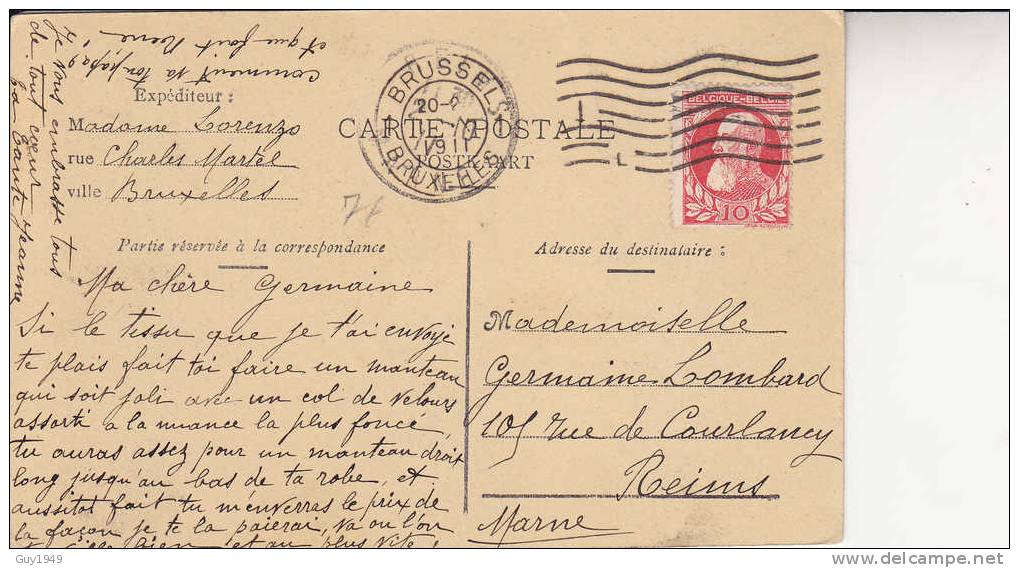 et que fait Rene ?
comment va ton papa ?
Je vous embrasse tous
de tout cœur
ta tante Jeanne
Expéditeur :
Madame Lorenzo
rue Charles Martel
ville Bruxelles
BRUSSEL
20-
1911
BRUXELLES
CARTE POSTALE
POSTKAART
L
L
BELGIQUE-BELGIË
10
Partie réservée à la correspondance
Ma chère Germaine
Si le tissu que je t'ai envoyé
te plais fait toi faire un manteau
qui soit joli avec un col de velours
assorti a la nuance la plus foncé
tu auras assez pour un manteau droit
long jusqu'au bas de ta robe, et
aussitot fait tu m'enverras le prix de
la façon je te la paierai, va ou l'on
bien et au plus vite !
Adresse du destinataire :
Mademoiselle
Germaine Lombard
105 rue de Courlancy
Reims
Marne
Guy1949
delcampe.net